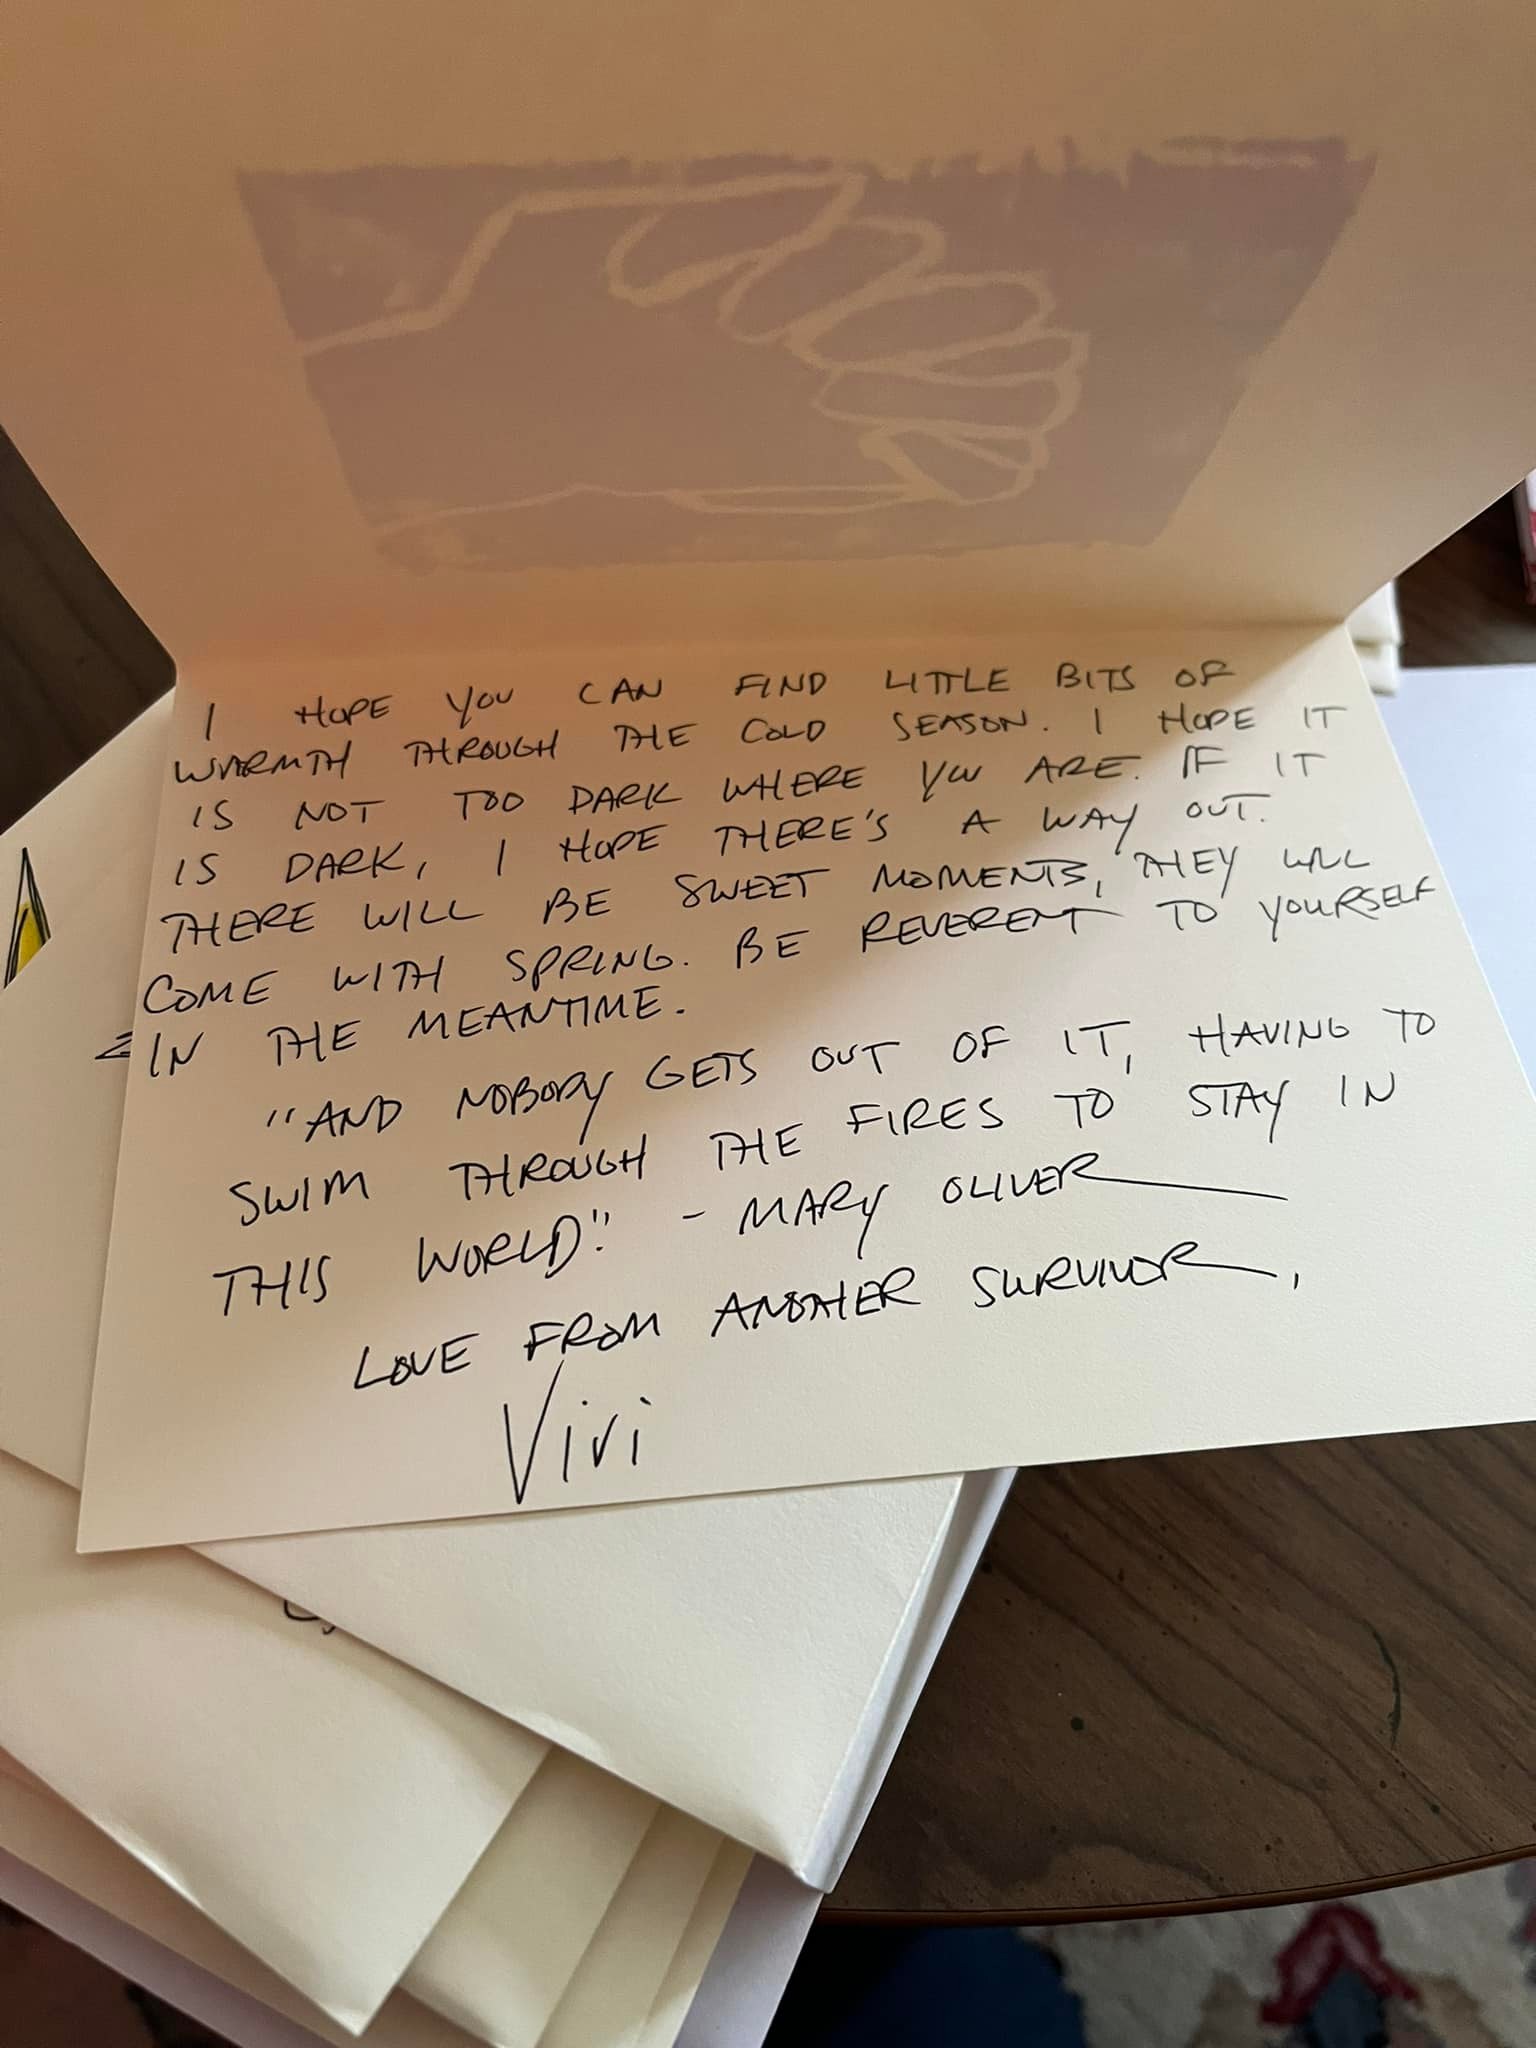 I HOPE YOU CAN FIND LITTLE BITS OF
WARMTH THROUGH THE COLD SEASON. I HOPE IT
IS NOT TOO DARK WHERE YOU ARE. IF IT
IS DARK, I HOPE THERE'S A WAY OUT.
THERE WILL BE SWEET MOMENTS, THEY WILL
COME WITH SPRING. BE REVERENT TO YOURSELF
IN THE MEANTIME.
"AND NOBODY GETS OUT OF IT, HAVING TO
SWIM THROUGH THE FIRES TO STAY IN
THIS WORLD." - MARY OLIVER
LOVE FROM ANOTHER SURVIVOR,
Vivi